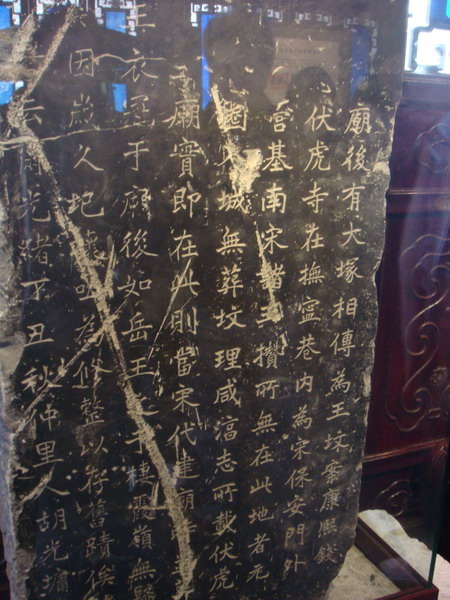 廟後有大塚相傳為王坟案康熙錢
伏虎寺在撫寧巷内為宋保安門外
宫基南宋諸王攢所無在此地者元
城無葬坟理咸淳志所載伏虎
廟實即在此則當宋代建廟
衣冠于廟後如岳王之于棲霞嶺無
因歲久地為修整以存舊蹟俟
云光緒丁丑秋仲里人胡光墉